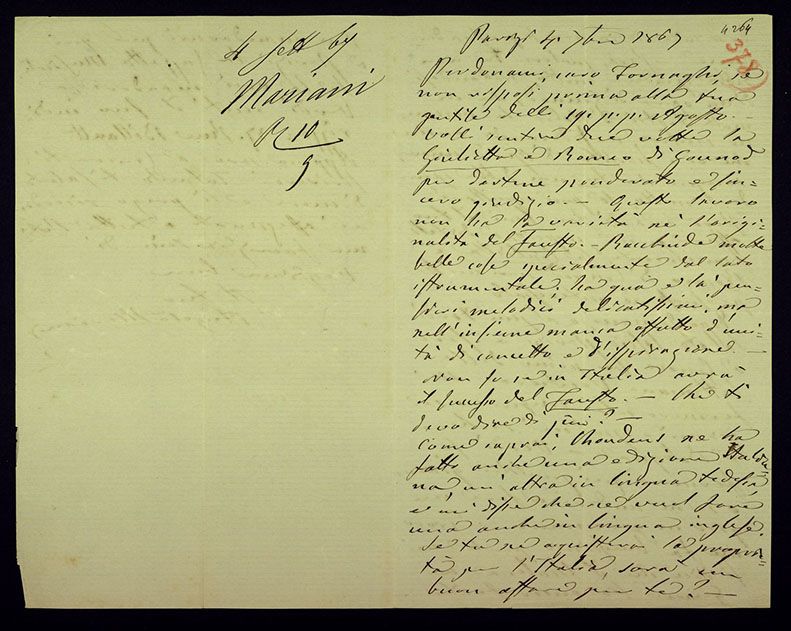 4 Sett 67
Mariani
R 10
9
4264
378
Parigi 4 7bre 1867
Perdonami, caro Tornaghi, se
non risposi prima alla tua
gentile delli 19 p.p. Agosto. —
Volli sentire due volte la
Giulietta e Romeo di Gounod
per dartene ponderato e sin=
cero giudizio. — Questo lavoro
non ha la varietà nè l'origi=
nalità del Fausto. — Racchiude molte
belle cose specialmente dal lato
istrumentale, ha quà e là pen=
sieri melodici delicatissimi, ma
nell'insieme manca affatto d'uni=
tà di concetto e d'ispirazione. —
Non so se in Italia avrà
il successo del Fausto. — Che ti
devo dire di più? —
Come saprai, Choudens ne ha
fatto anche una edizione Italia=
na un'altra in lingua tedesca
e mi disse che ne vuol fare
una anche in lingua inglese.
Se tu ne acquisterai la proprie=
tà per l'Italia, sarà un
buon affare per te? —